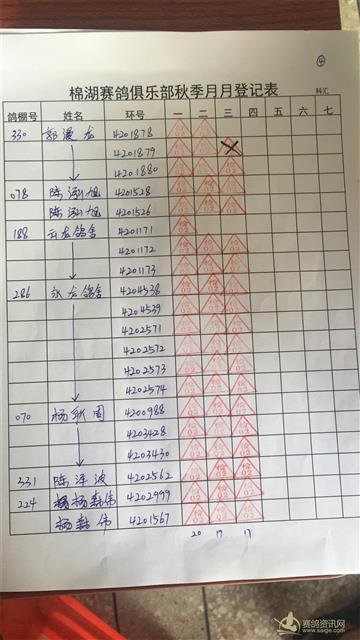 ④
棉湖赛鸽俱乐部秋季月月登记表 科汇
鸽棚号 姓名 环号 一 二 三 四 五 六 七
330 郭漢龙 4201878
4201879
4201880
078 陈泓旭 4201528
陈泓旭 4201526
188 云龙鸽舍 4201171
4201172
4201173
286 永龙鸽舍 4204538
4204539
4202571
4202572
4202573
4202574
070 杨 4200988
4203428
4203430
331 陈泽波 4202562
224 杨 伟 4202999
杨 伟 4201567
20 17 17
赛鸽资讯网
www.saige.com